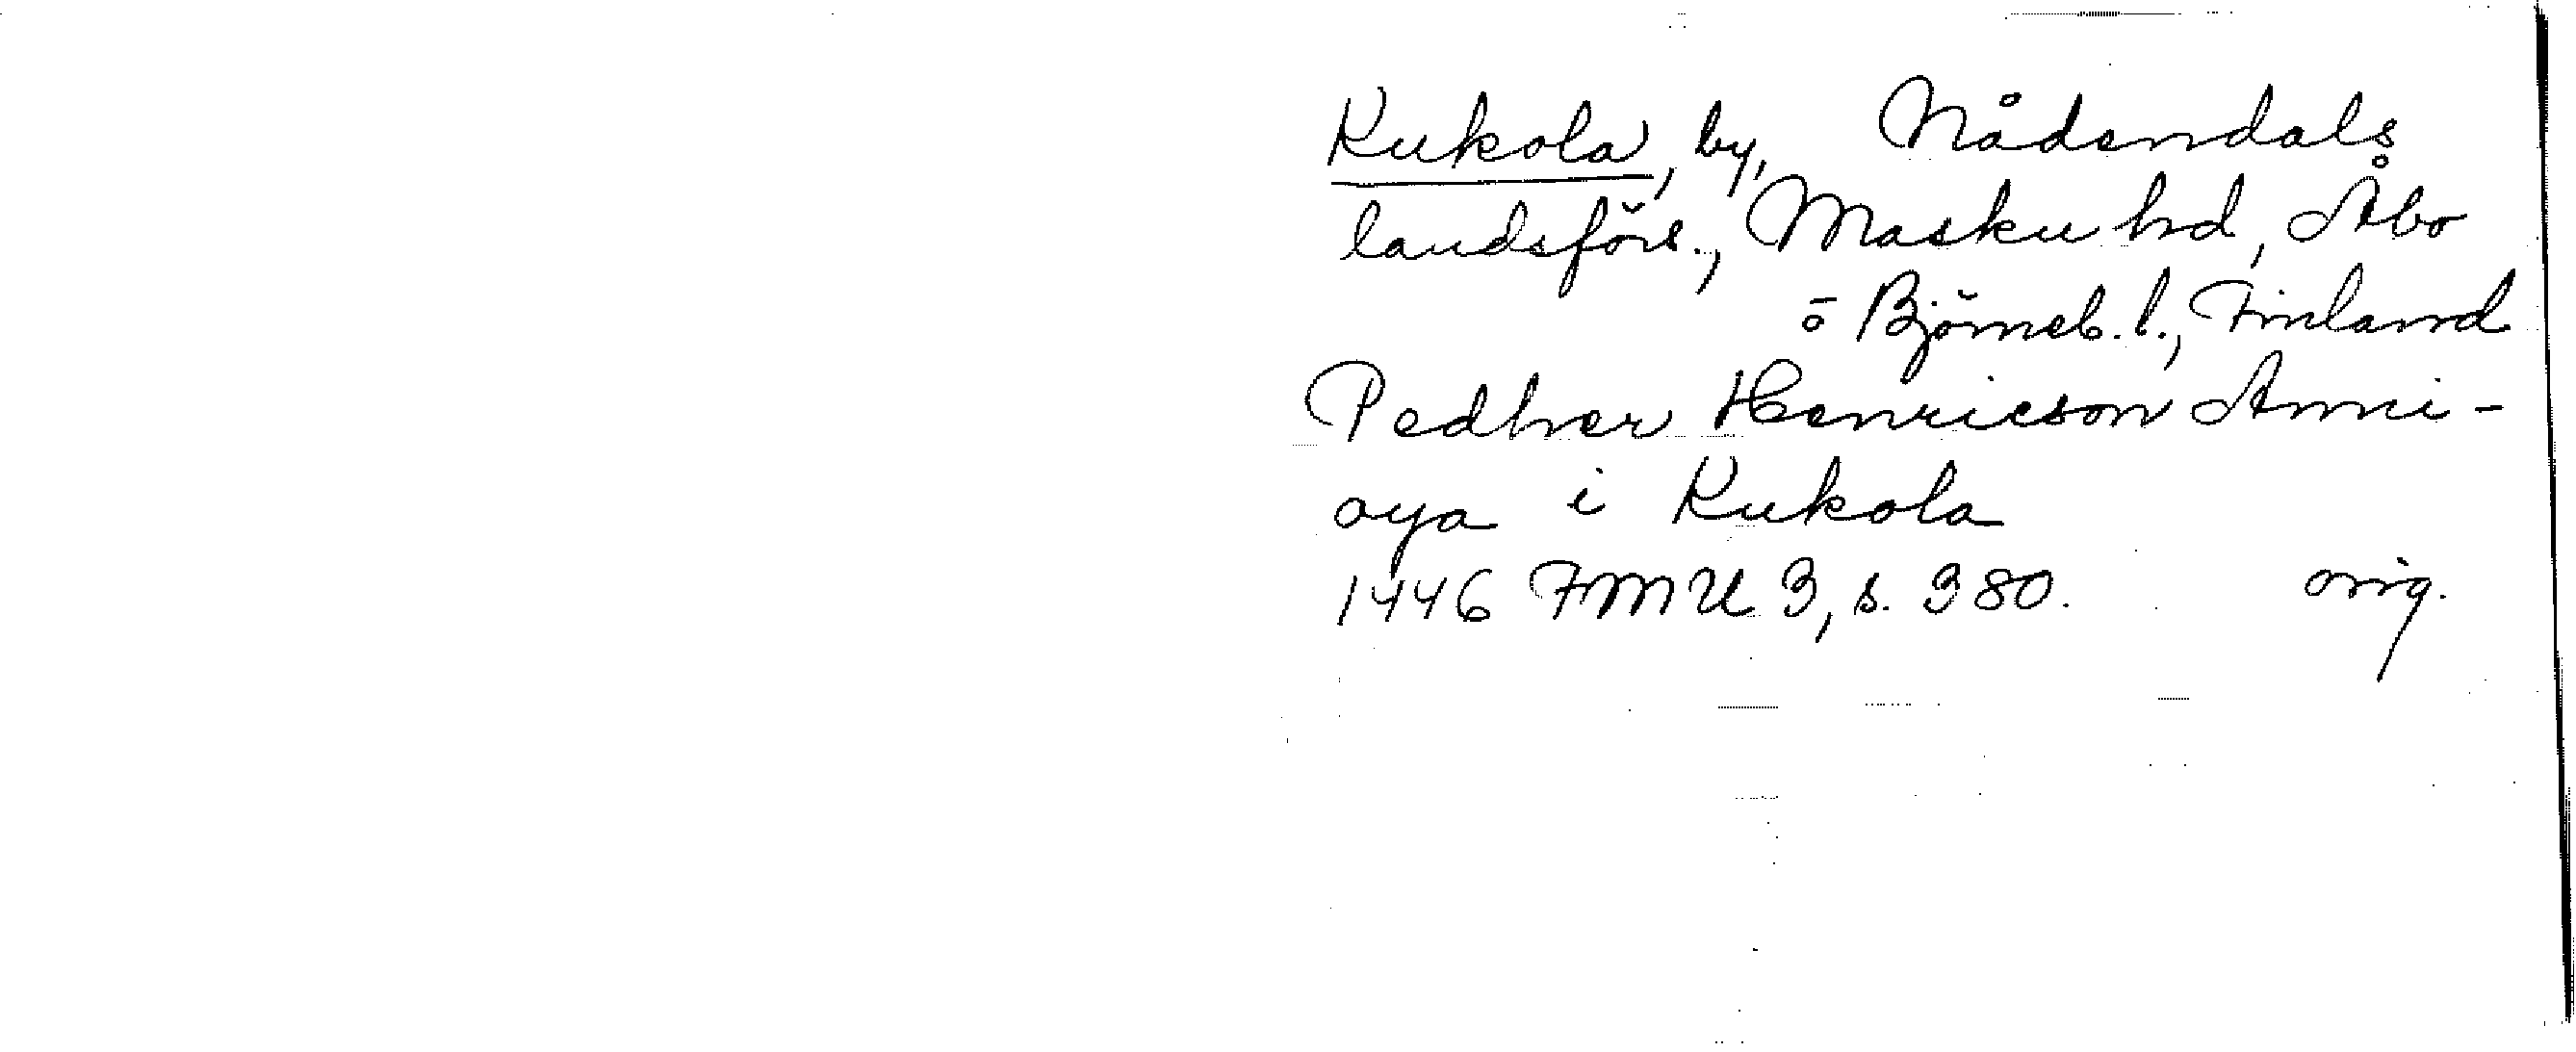 Kukola, by, Nådendals
landsförs., Masku hd, Åbo
o Björneb. l., Finland
Pedher Henricson Anni-
oya i Kukola
1446 FMU 3, s. 380. orig.